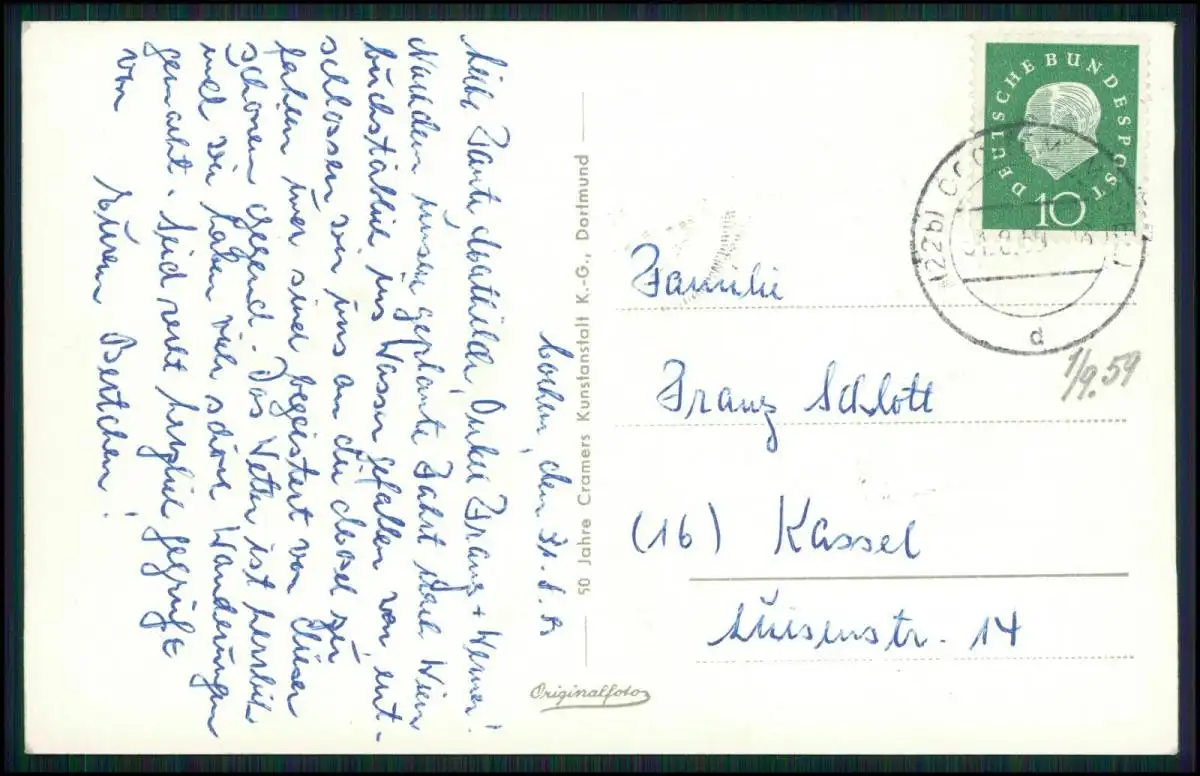 Cochem, den 31.8.59
Liebe Tante Mathilde, Onkel Franz + Werner!
Nachdem unsere geplante Fahrt nach Wien
buchstäblich ins Wasser gefallen war, ent-
schlossen wir uns an die Mosel zu
fahren. Wir sind begeistert von dieser
schönen Gegend. Das Wetter ist herrlich
und wir haben viele schöne Wanderungen
gemacht. Seid recht herzlich gegrüßt
von Eurem Bertchen!
50 Jahre Cramers Kunstanstalt K.-G., Dortmund
Originalfoto
DEUTSCHE BUNDESPOST
10
(22b)
d
1/9.59
Familie
Franz Schlott
(16) Kassel
Luisenstr. 14